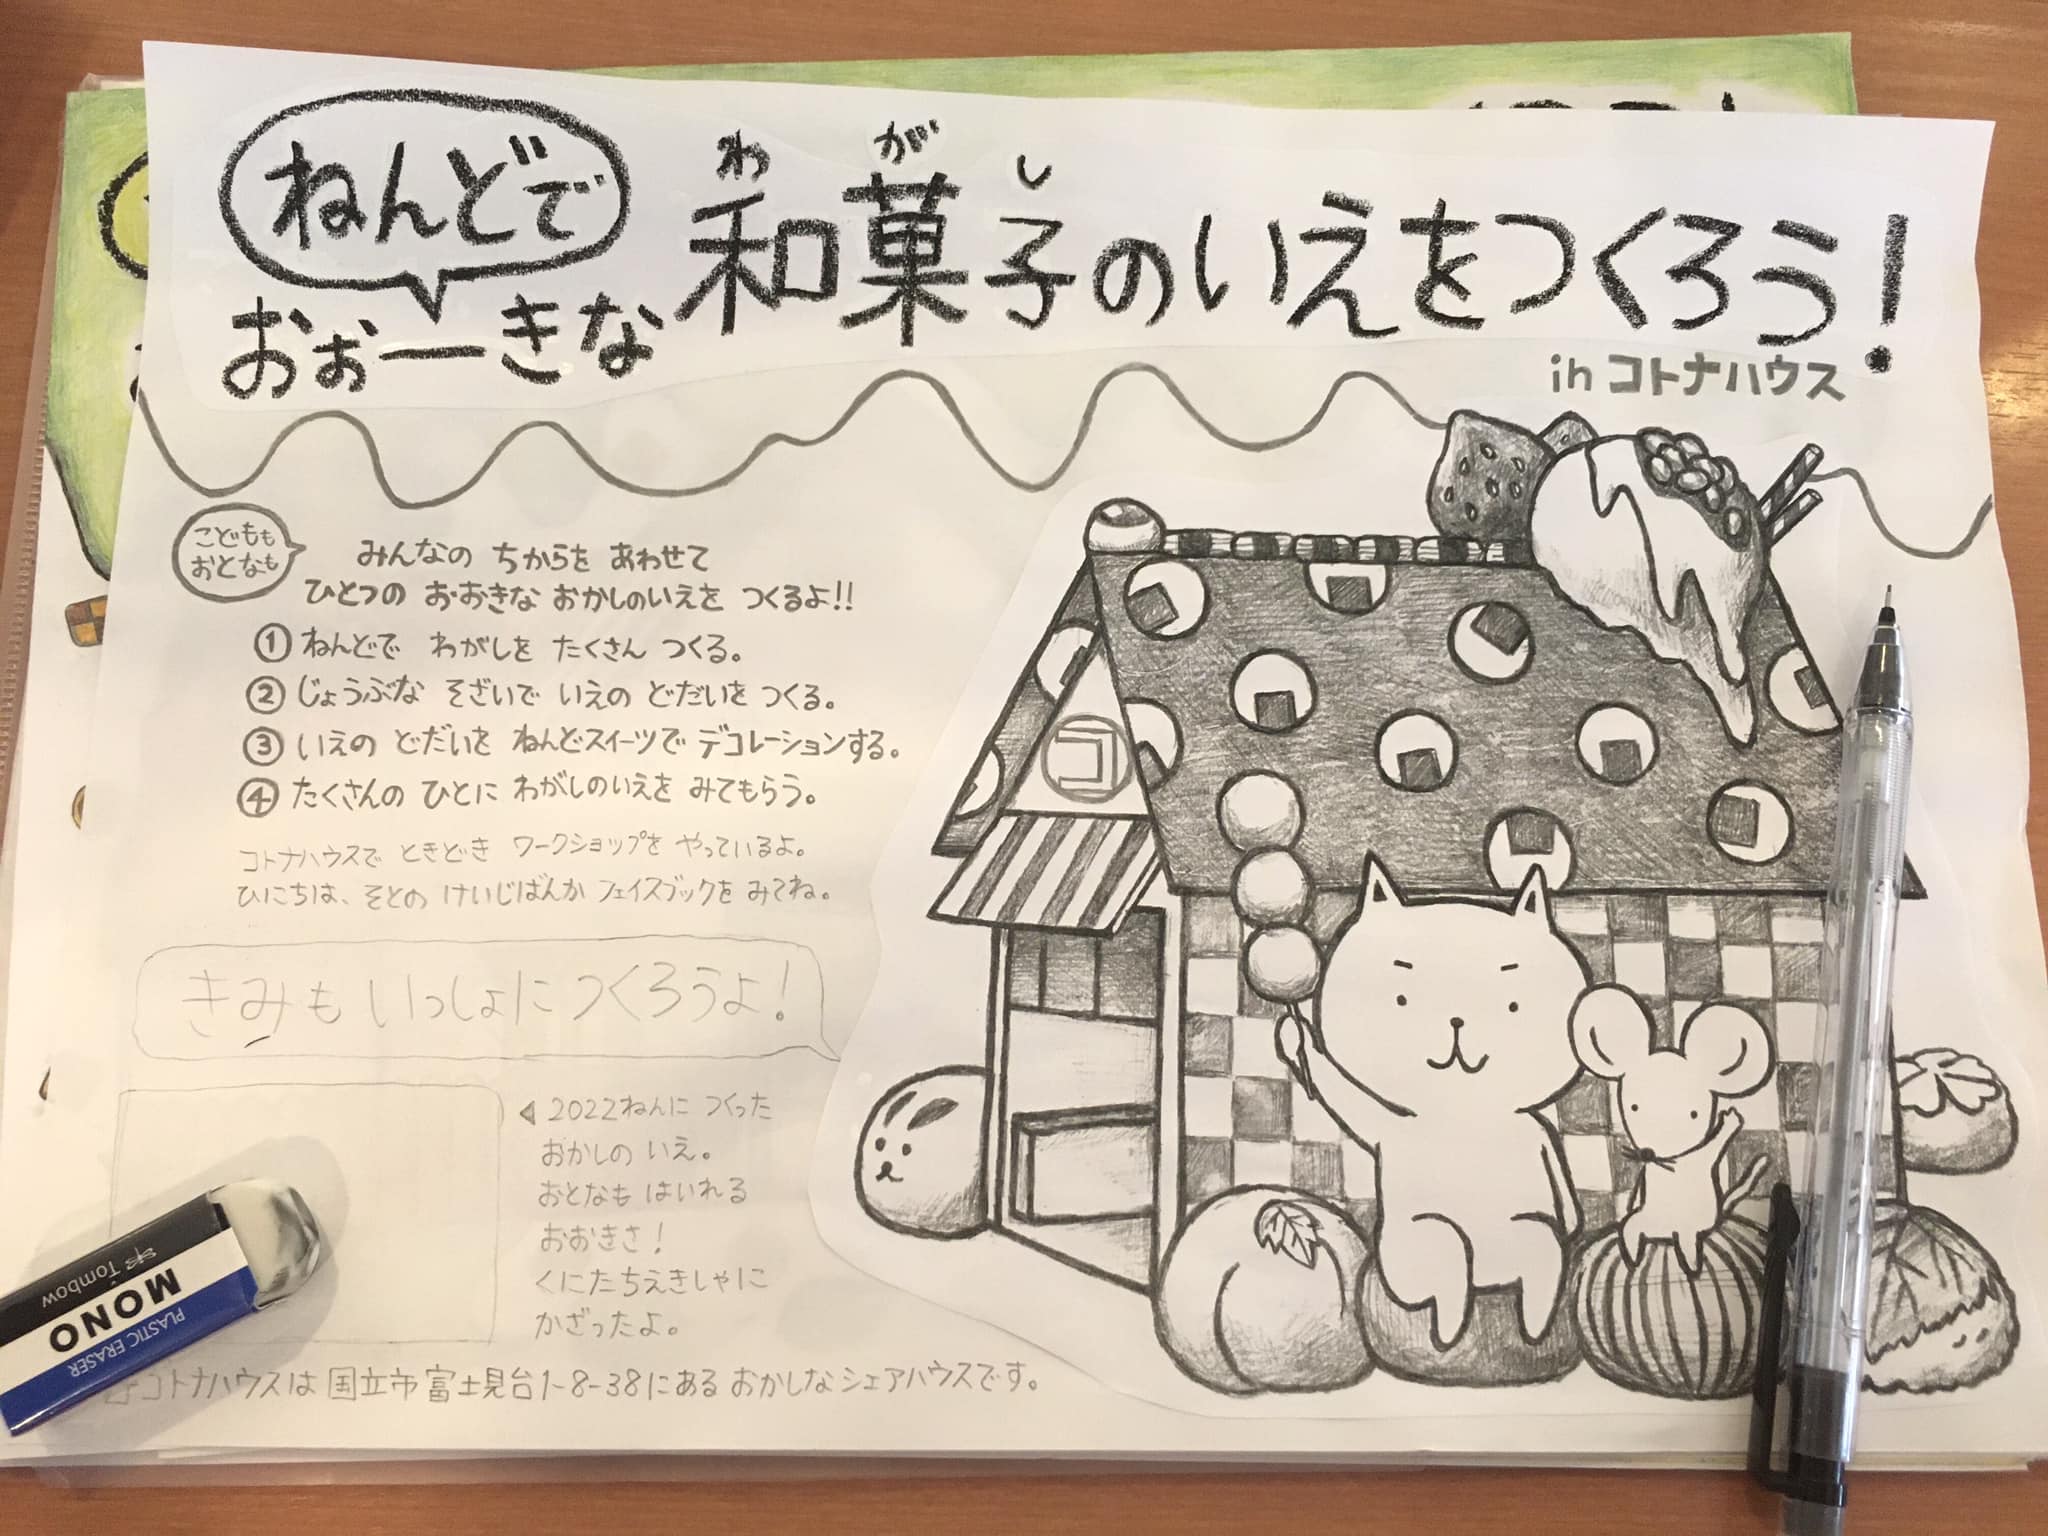 ねんどで
おぉーきな
わがし
和菓子のいえをつくろう!
in コトナハウス
こどもも
おとなも
みんなの ちからを あわせて
ひとつの おおきな おかしのいえを つくるよ!!
① ねんどで わがしを たくさん つくる。
② じょうぶな そざいで いえの どだいを つくる。
③ いえの どだいを ねんどスイーツで デコレーションする。
④ たくさんの ひとに わがしのいえを みてもらう。
コトナハウスで ときどき ワークショップを やっているよ。
ひにちは、そとの けいじばんか フェイスブックを みてね。
きみも いっしょに つくろうよ!
◀ 2022ねんに つくった
おかしの いえ。
おとなも はいれる
おおきさ!
くにたちえきしゃに
かざったよ。
コトナハウスは 国立市富士見台1-8-38にある おかしなシェアハウスです。
コ
Tombow
MONO
PLASTIC ERASER